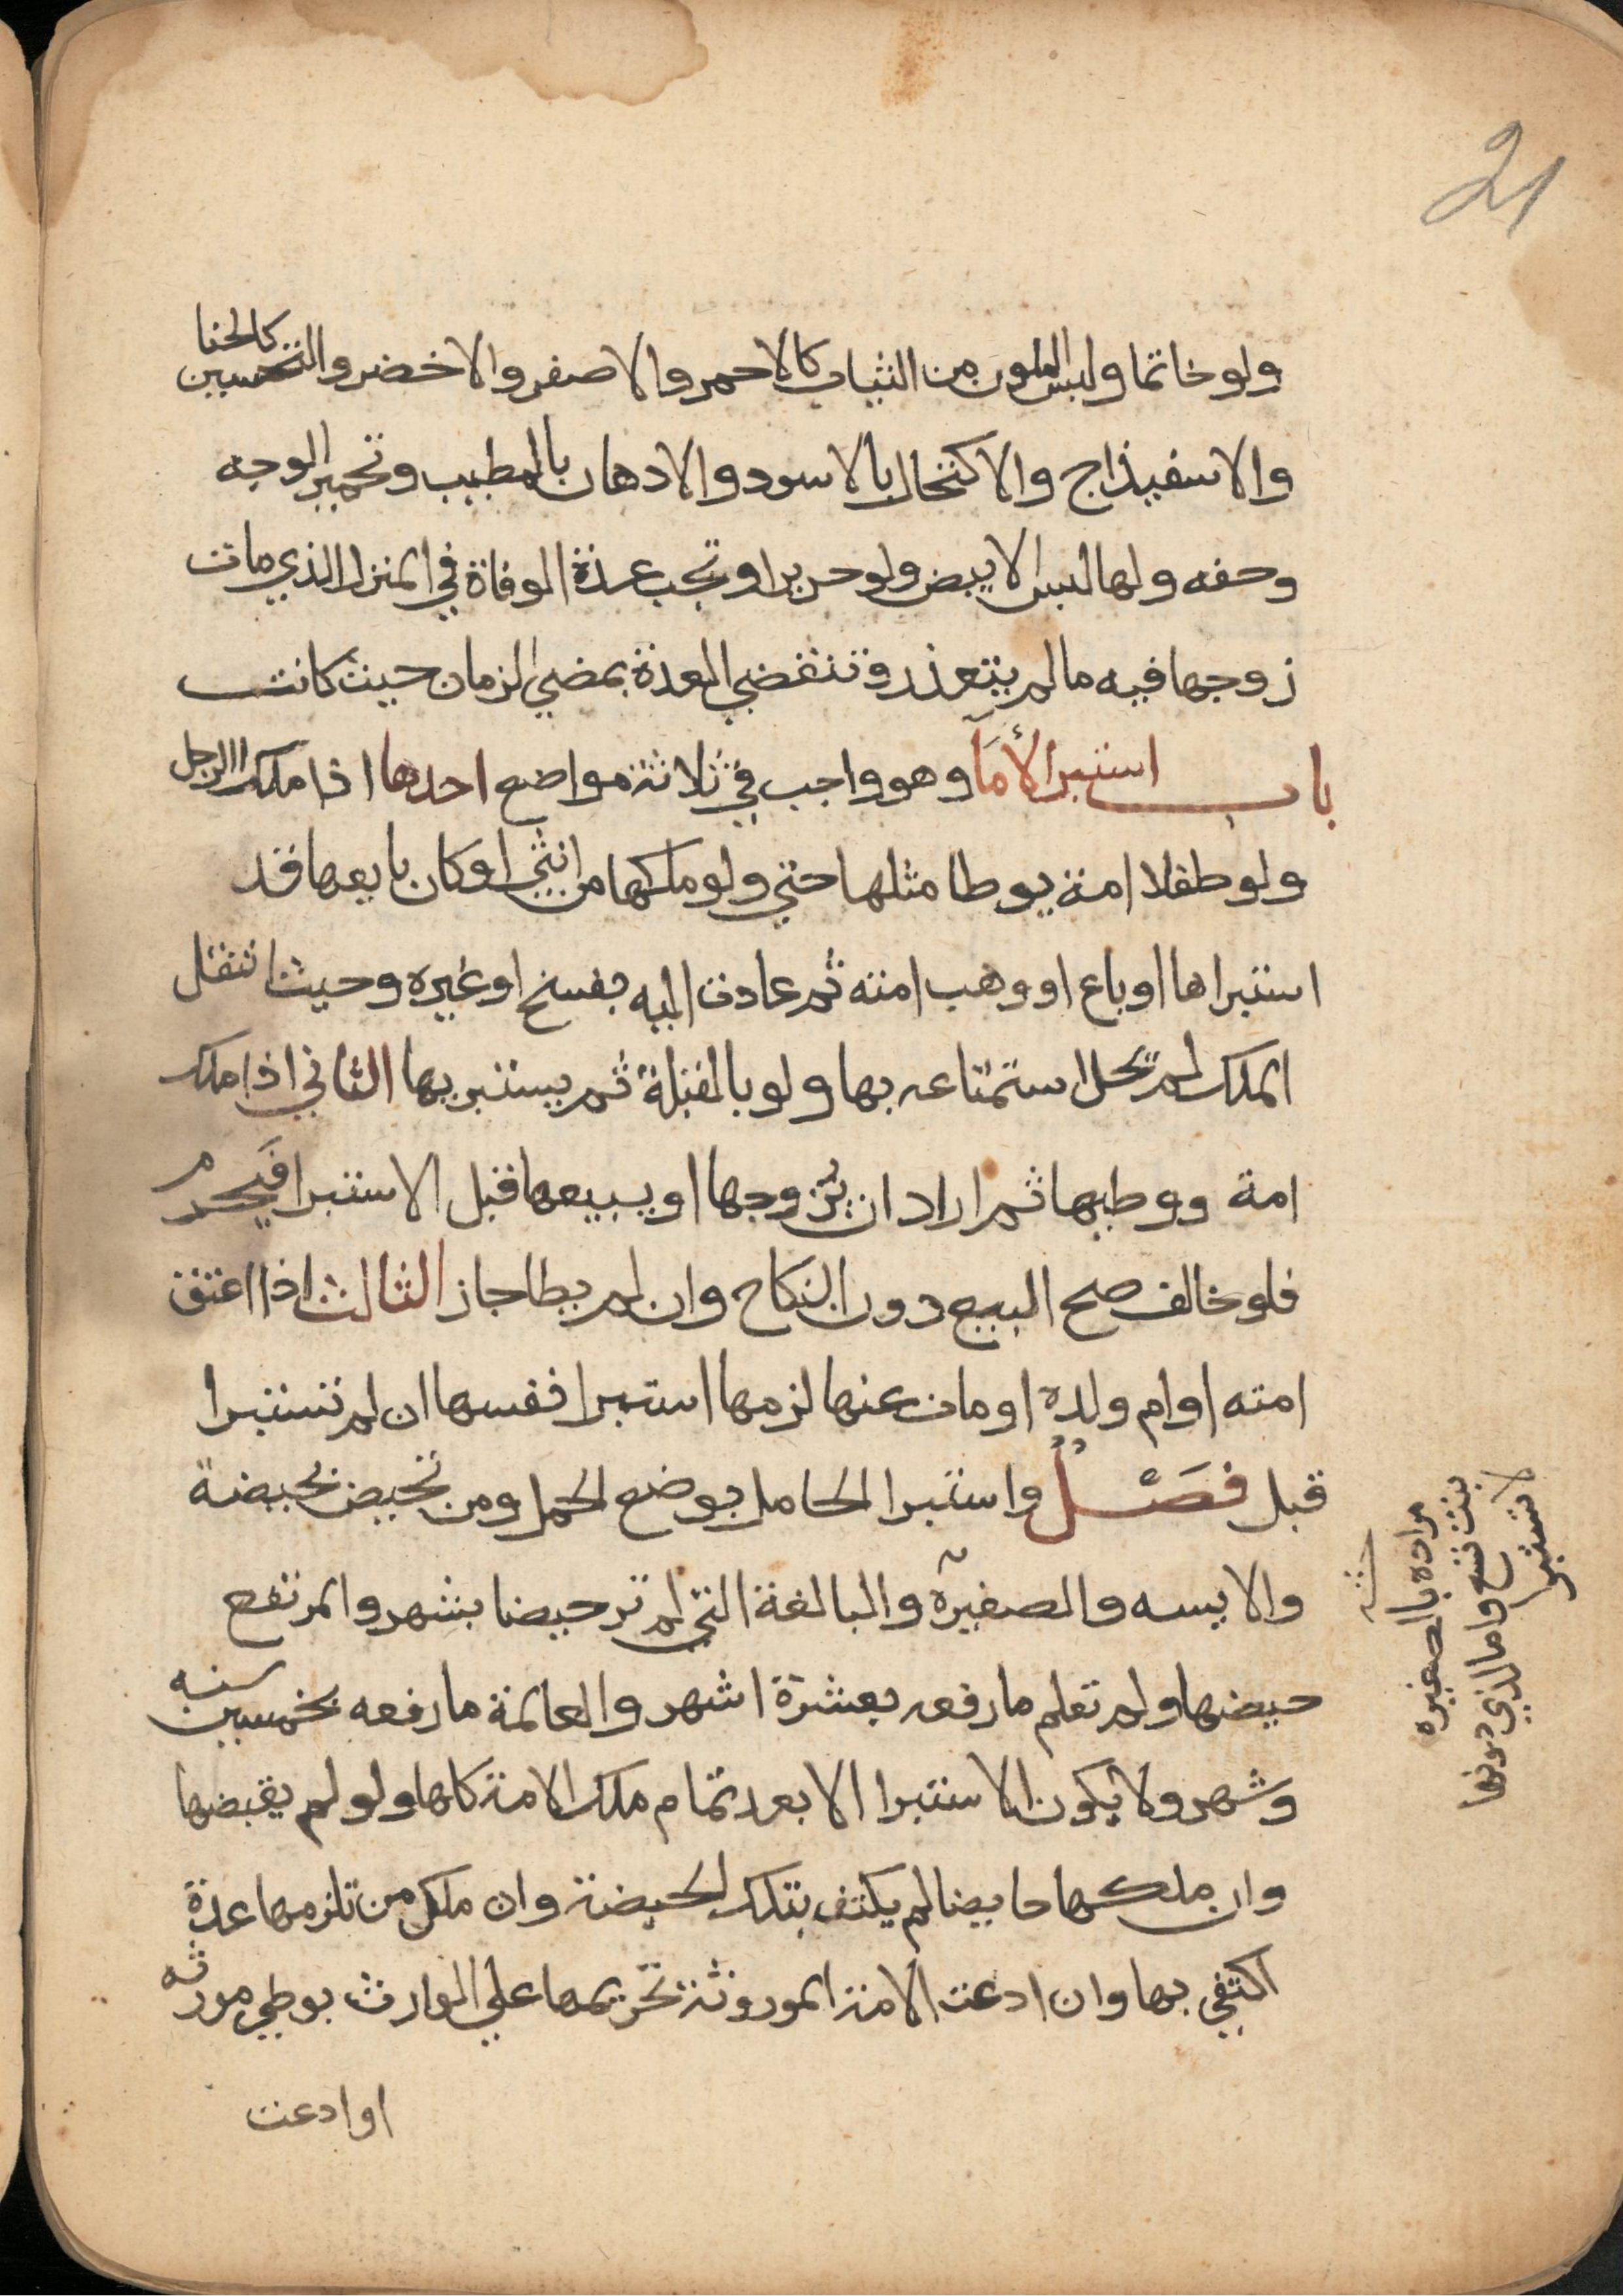 21
ولو خاتما ولبس الملون من الثياب كالاحمر والاصفر والاخضر والتحسين كالحنا
والاسفيذاج والاكتحال بالاسود والادهان بالمطيب وتحمير الوجه
وحفه ولها لبس الابيض ولو حريرا وتجب عدة الوفاة في المنزل الذي مات
زوجها فيه ما لم يتعذر وتنقضي العدة بمضي الزمان حيث كانت
باب استبرا الأمآ وهو واجب في ثلاثة مواضع احدها اذا ملك الرجل
ولو طفلا امة يوطا مثلها حتي ولو ملكها من انثي او كان بايعها قد
استبراها او باع او وهب امته ثم عادت اليه بفسخ او غيره وحيث انتقل
الملك لم تحل استمتاعه بها ولو بالقبلة ثم يستبريها الثاني اذا ملك
امة ووطيها ثم اراد ان يزوجها او يبيعها قبل الاستبرا فيحرم
فلو خالف صح البيع دون النكاح وان لم يطا جاز الثالث اذا اعتق
امته او ام ولده او مات عنها لزمها استبرا نفسها ان لم تستبرا
قبل فصل واستبرا الحامل بوضع الحمل ومن تحيض بحيضة
والايسه والصغيرة والبالغة التي لم تر حيضا بشهر والمرتفع
حيضها ولم تعلم ما رفعه بعشرة اشهر والعالمة ما رفعه بخمسين سنه
وشهر ولا يكون الاستبرا الا بعد تمام ملك الامة كلها ولو لم يقبضها
وان ملكها حايضا لم يكتف بتلك الحيضة وان ملك من تلزمها عدة
اكتفي بها وان ادعت الامة الموروثة تحريمها علي الوارث بوطي مورثه
او ادعت
مراده بالصغيره
بنت تسع واما الذي دونها
لا تستبر